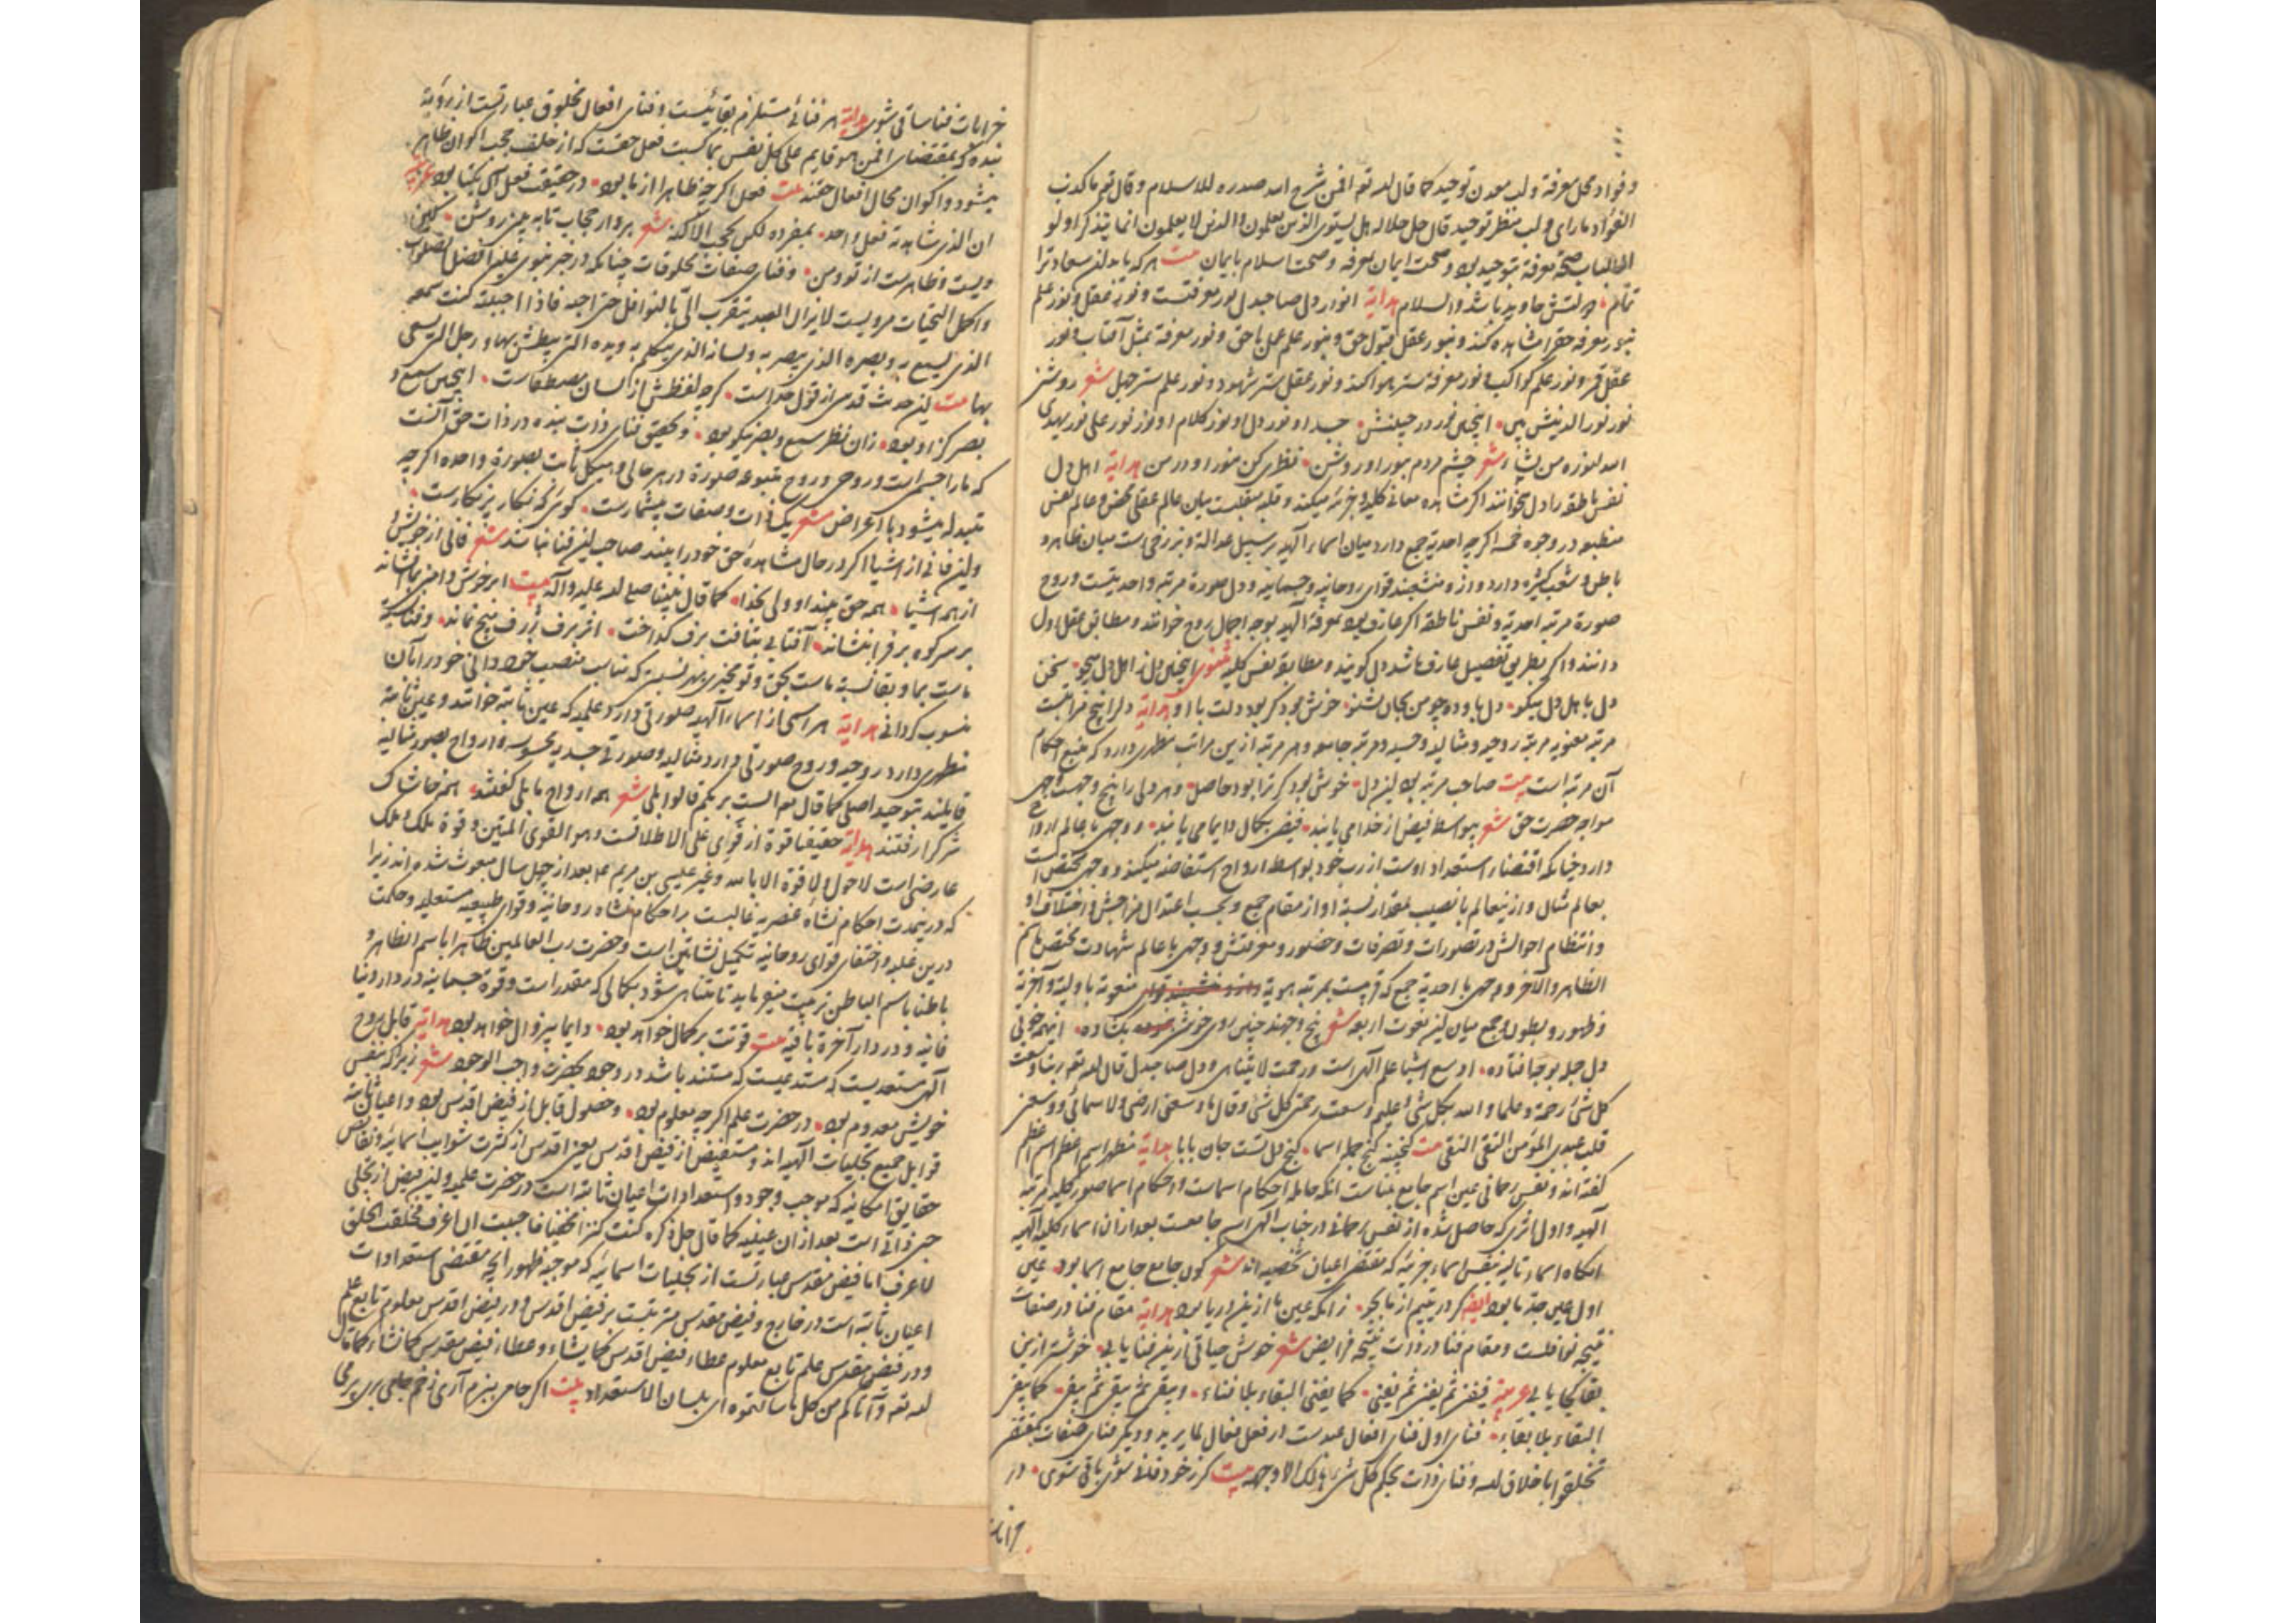 و فواد محل معرفة و لب معدن توحید کما قال الله تعه افمن شرح الله صدره للاسلام و قال تعه ما کذب
الفؤاد ما رای و لب منظر توحید قال جل جلاله هل یستوی الذین یعلمون و الذین لا یعلمون انما یتذکر اولو
الالباب صحة معرفة بتوحید بود و صحت ایمان بمعرفه و صحت اسلام بایمان بیت هر که یابد این سعادترا
تمام دولتش جاوید باشد والسلام هدایة انوار دل صاحبدل نور معرفتست و نور عقل و نور علم
بنور معرفه حق را مشاهده کند و بنور عقل قبول حق و بنور علم عمل باحق و نور معرفة بمثل آفتاب و نور
عقل قمر و نور علم کواکب و نور معرفة ستر هوا کند و نور عقل ستر شهود و نور علم ستر جهل شعر روشن
نور نور الدینش بین اینچنین نور در جبینش جسد او نور دل او نور کلام او نور نور علی نور یهدی
الله لنوره من یشاء شعر چشم مردم بنور او روشن نظری کن بنور او در من هدایة اهل دل
نفس ناطقه را دل میخوانند اکر مشاهده معانی کلیه و جزئیه میکند و قلبه منقلبست میان عالم عقل محض و عالم نفس
منطبعه در وجوه خمسه اکرچه احدیة جمع دارد میان اسماء آلهیه بر سبیل عدالة و برزخی است میان ظاهر و
باطن و شعب کثیره دارد و ازو منشعبند قوای روحانیه و جسمانیه و دل صورة مرتبه واحدیتست و روح
صورة مرتبه احدیة و نفس ناطقه اکر عارف بود بمعرفة آلهیه بوجه اجمال روح خوانند و مطابق عقل اول
دانند و اکر بطریق تفصیل عارف باشد دل کویند و مطابق نفس کلیه مثنوی اینچنین دل ز اهل دل میجو سخن
دل باهل دل میکو دل باو ده چو من بجان بشنو خوش بود کر بود دلت با او هدایة دلرا پنج مرتبست
مرتبه معنویه مرتبه روحیه و مثالیه و حسیه و مرتبه جامعه و هر مرتبه ازین مراتب مظهری دارد که منبع احکام
آن مرتبه است بیت صاحب مرتبه بود این دل خوش بود کر ترا بود حاصل و هر دلی را پنج وجهست وجهی
مواجه حضرت حق شعر بیواسطه فیض از خدا می یابند فیضی بکمال دایما می یابند و وجهی با عالم ارواح
دارد چنانکه اقتضاء استعداد اوست از رب خود بواسطه ارواح استفاضه میکند و وجهی مختص است
بعالم مثال و ازینعالم با نصیب بمقدار نسبة او از مقام جمع و بحسب اعتدال مزاجش و اخلاق او
و انتظام احوالش در تصورات و تصرفات و حضور و معرفتش و وجهی با عالم شهادت مختص باسم
الظاهر و الآخر و وجهی با احدیة جمع که قریبست بمرتبه هویة منعوته باولیة و آخریة
و ظهور و بطون و جمع میان این نعوت اربعه شعر پنج وجهند چنین روی خوشی بکشاده اینهمه خوبی
دل جمله بوجا فتاده اوسع اشیا علم آلهی است و رحمت لا یتناهی و دل صاحبدل قال الله تعه ربنا وسعت
کل شیٔ رحمة و علما و الله بکل شیٔ علیم وسعت رحمتی کل شیٔ و قال ما وسعنی ارضی و لا سمائی و وسعنی
قلب عبدی المؤمن التقی النقی بیت کنجینه کنج جمله اسما کنج دل تست جان بابا هدایة مظهر اسم اعظم اسم اعظم
کفته اند و نفس رحمانی عین اسم جامع بناست انکه حامله احکام اسماست و احکام اسما صور کلیه مرتبه
آلهیه و اول اثری که حاصل شده از نفس رحمانی در جناب آلهی اسم جامعست بعد ازان اسماء کلیه آلهیه
انکاه اسماء تالیه بنفس اسماء جزئیه که مقتضی اعیان شخصیه اند شعر کون جامع جامع اسما بود عین
اول عین جد ما بود ایضا کر در یتیم از ما بجو زانکه عین ما ازین دریا بود هدایة مقام فنا در صفات
نتیجه نوافلست و مقام فنا در ذات نتیجه فرایض شعر خوش حیاتی از ین فنا یابی خوشتر ازین
بقا کجا یابی عربیة فیفنی ثم یفنی ثم یفنی کما یفنی البقاء بلا فناء و یبقی ثم یبقی ثم یبقی کما یبقی
البقاء بلا بقاء فنای اول فنای افعال عبدست در فعل فعال لما یرید و دیکر فنای صفات بمقتضی
تخلقوا باخلاق الله و فنای ذات بحکم کل شیٔ هالک الا وجهه بیت کر ز خود فانی شوی باقی شوی در
خرابات
خرابات فنا ساقی شوی هدایة هر فنائی مستلزم بقائیست و فنای افعال مخلوق عبارتست از رؤیة
بنده که بمقتضای افمن هو قایم علی کل نفس بما کسبت فعل حقست که از خلف حجب اکوان ظاهر
میشود و اکوان محال افعال حقند بیت فعل اکرچه ظاهرا از ما بود در حقیقت فعل آن یکتا بود عربیة
ان الذی شاهدته فعل واحد بمفرده لکن بحجب الاکنة شعر بردار حجاب تا ببینی روشن
ویست و ظاهرست از تو و من و فنای صفات مخلوقات چنانکه در خبر نبوی علیه افضل الصلوات
و اکمل التحیات مرویست لا یزال العبد یتقرب الی بالنوافل حتی احبه فاذا احببته کنت سمعه
الذی یسمع به و بصره الذی یبصر به و لسانه الذی یتکلم به و یده التی یبطش بها و رجله التی یسعی
بها بیت این حدیث قدسی از قول خداست کرچه لفظش از لسان مصطفاست اینچنین سمع و
بصر کز او بود زان نظر سمع و بصر نیکو بود و تحقیق فنای ذات بنده در ذات حق آنست
که ما را جسمی است و روحی و روح متنوعه صورة در هر حالی و هیکل ثابت بصورة واحده اکرچه
متبدله میشود باعراض شعر یک ذات و صفات بیشمارست کوئی که نکار پرنکارست
و این فانی از اشیا اکر در حال مشاهده حق خود را بیند صاحب این فنا نباشد شعر فانی از خویش و
از همه اشیا همه حق بیند او ولی بخدا کما قال نبینا صلی الله علیه و آله بیت ابر خوش دامنی بما افشاند
بر سر کوه برف بنشاند آفتابی بتافت برف کداخت اثر برف و برف هیچ نماند و فنا نسبة
ماست بما و بقا نسبة ماست بحق و تو مخیری بهر نسبتی که مناسب منصب خود دانی خود را بآن
منسوب کردانی هدایة هر اسمی از اسماء آلهیه صورتی دارد علمیه که عین ثابته خوانند و عین ثابتة
مظهری دارد روحیه و روح صورتی دارد مثالیه و صورتی جسدیه محسوسه و ارواح بصور مثالیه
قایلند بتوحید اصلی کما قال تعه الست بربکم قالوا بلی شعر همه ارواح ما بلی کفتند همه خاشاک
شرک را رفتند هدایة حقیقت قوة از قوای علی الاطلاقست و هو القوی المتین و قوة ملک و ملک
عارضی است لا حول و لا قوة الا بالله و غیر عیسی بن مریم عم بعد از چهل سال مبعوث شده اند زیرا
که درینمدت احکام نشاه عنصریه غالبست بر احکام نشاه روحانیه و قوای طبیعیه مستعلیه و حکمت
درین غلبه و اختفای قوای روحانیه تکمیل نشأتین است و حضرت رب العالمین ظاهرا باسم الظاهر و
باطنا باسم الباطن تربیت میفرماید تا متناهی شود بکمالی که مقدر است و قوة جسمانیه در دار دنیا
فانیه و در دار آخرة باقیه بیت قوتت بر کمال خواهد بود دایما بیزوال خواهد بود هدایة قابل روح
آلهی مستعدیست که مستدعیست که مستند باشد در وجود بحضرت واجب الوجود شعر زیرا که بنفس
خویش معدوم بود در حضرت علم اکرچه معلوم بود و حصول قابل از فیض اقدس بود و اعیان ثابتة
قوابل جمیع تجلیات آلهیه اند و مستفیض از فیض اقدس یعنی اقدس از کثرت شوایب اسمائیه و نقایص
حقایق امکانیه که موجب وجود و استعدادات اعیان ثابته است در حضرت علمیه و این فیض از تجلی
حبی ذاتی است بعد از ان عینیه کما قال جل ذکره کنت کنزا مخفیا فاحببت ان اعرف فخلقت الخلق
لاعرف اما فیض مقدس عبارتست از تجلیات اسمائیه که موجب ظهور آنچه مقتضی استعدادات
اعیان ثابته است در خارج و فیض مقدس مترتبست بر فیض اقدس و در فیض اقدس معلوم تابع علم
و در فیض مقدس علم تابع معلوم عطاء فیض اقدس کما یشاء و عطاء فیض مقدس کما نشاء کما قال
الله تعه و آتاکم من کل ما سالتموه ای بلسان الاستعداد بیت اکر جامی بیزم آری ز خم جامی بری پر می